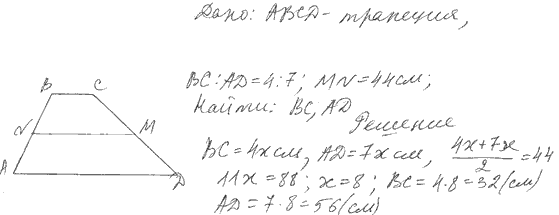 Дано: ABCD - трапеция,
BC:AD=4:7; MN=44см;
Найти: BC, AD
Решение
BC=4x см, AD=7x см, (4x+7x)/2=44
11x=88; x=8; BC=4·8=32(см)
AD=7·8=56(см)
B C
N M
A D